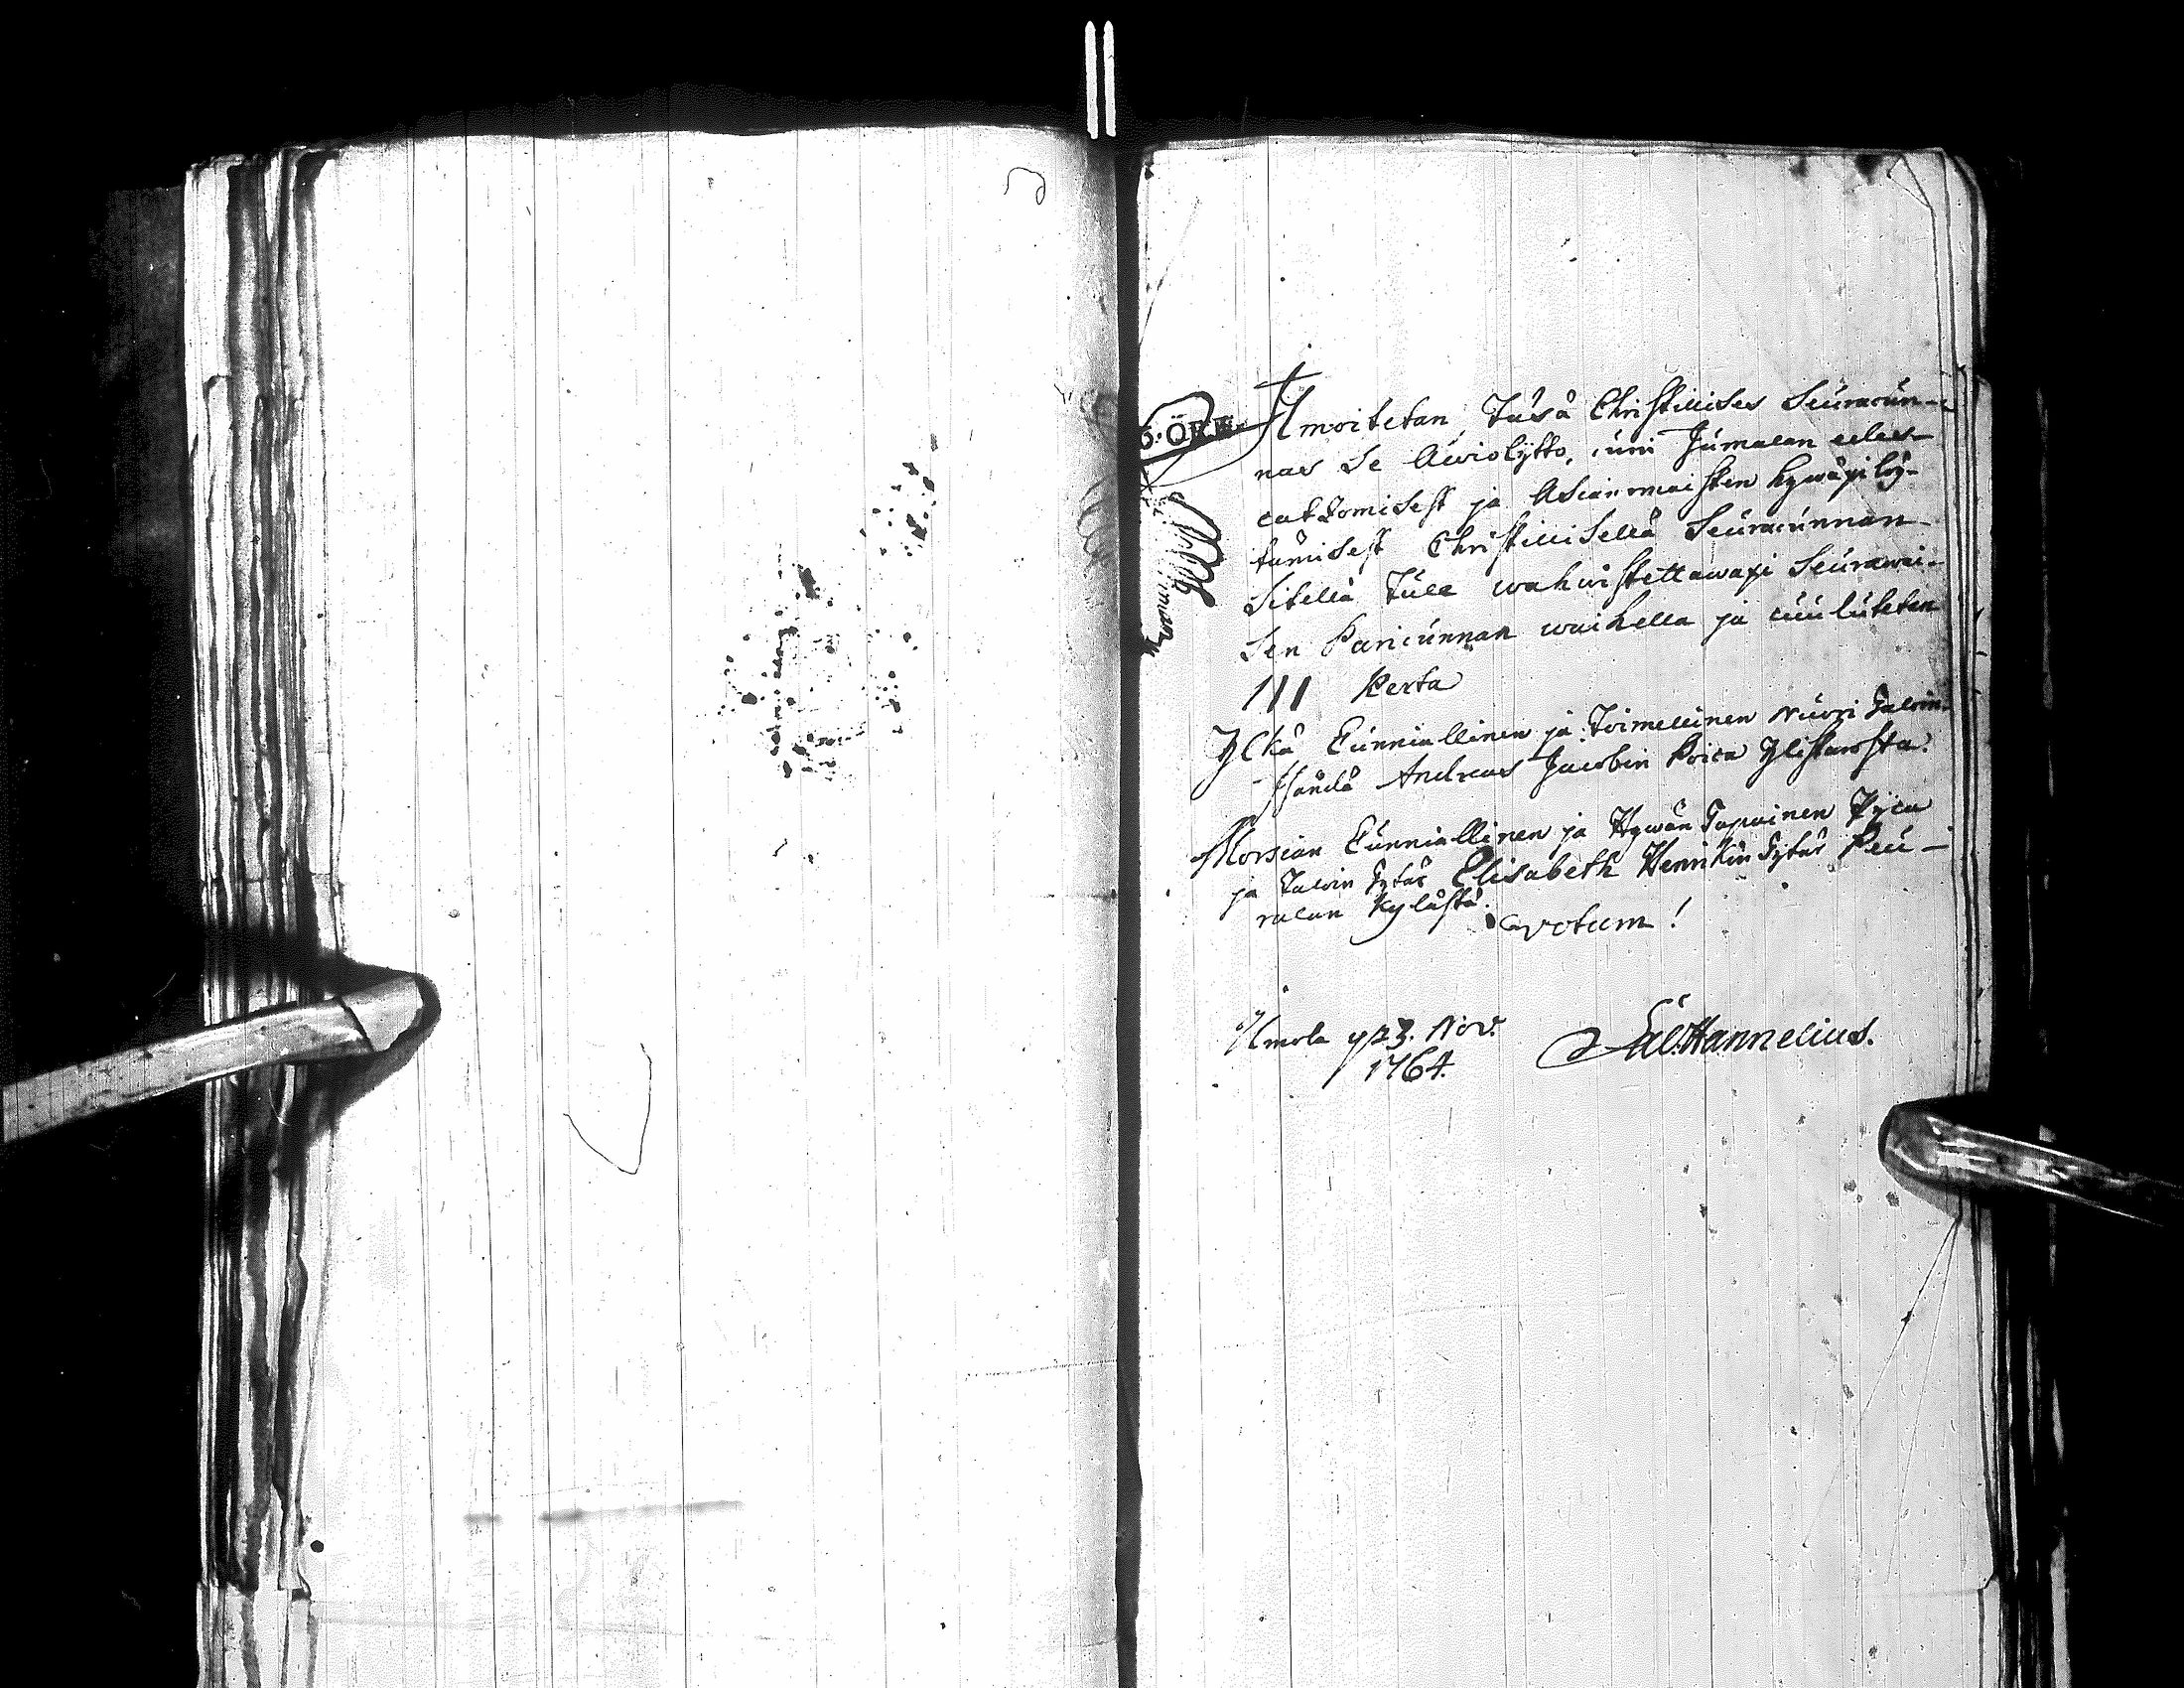 6. ÖRE.
Ilmoitetan, Täsä Christillises Seüracün-
nas se Awioliitto, cuin Jumalan edes-
catzomisest ja Asianomaisten hywäxi löy-
tämisest Christillisellä Seüracünnan
Sitellä tule wahwistettawaxi Seürawai-
sen Paricünnan waihella ja cuulutetan
III Kerta
Ylkä Cünniallinen ja Toimellinen Nuori Talon-
Isändä Andreas Jacobin Poica Ylistarosta.
Morsian Cünniallinen ja Hywän Tapainen Pijca
ja Talon Tytär Elisabeth Henrikin Tytär Peü-
ralan Kylästä.
votum!
Ilmola p 23. Nov.
1764.
Sal. Hannelius.